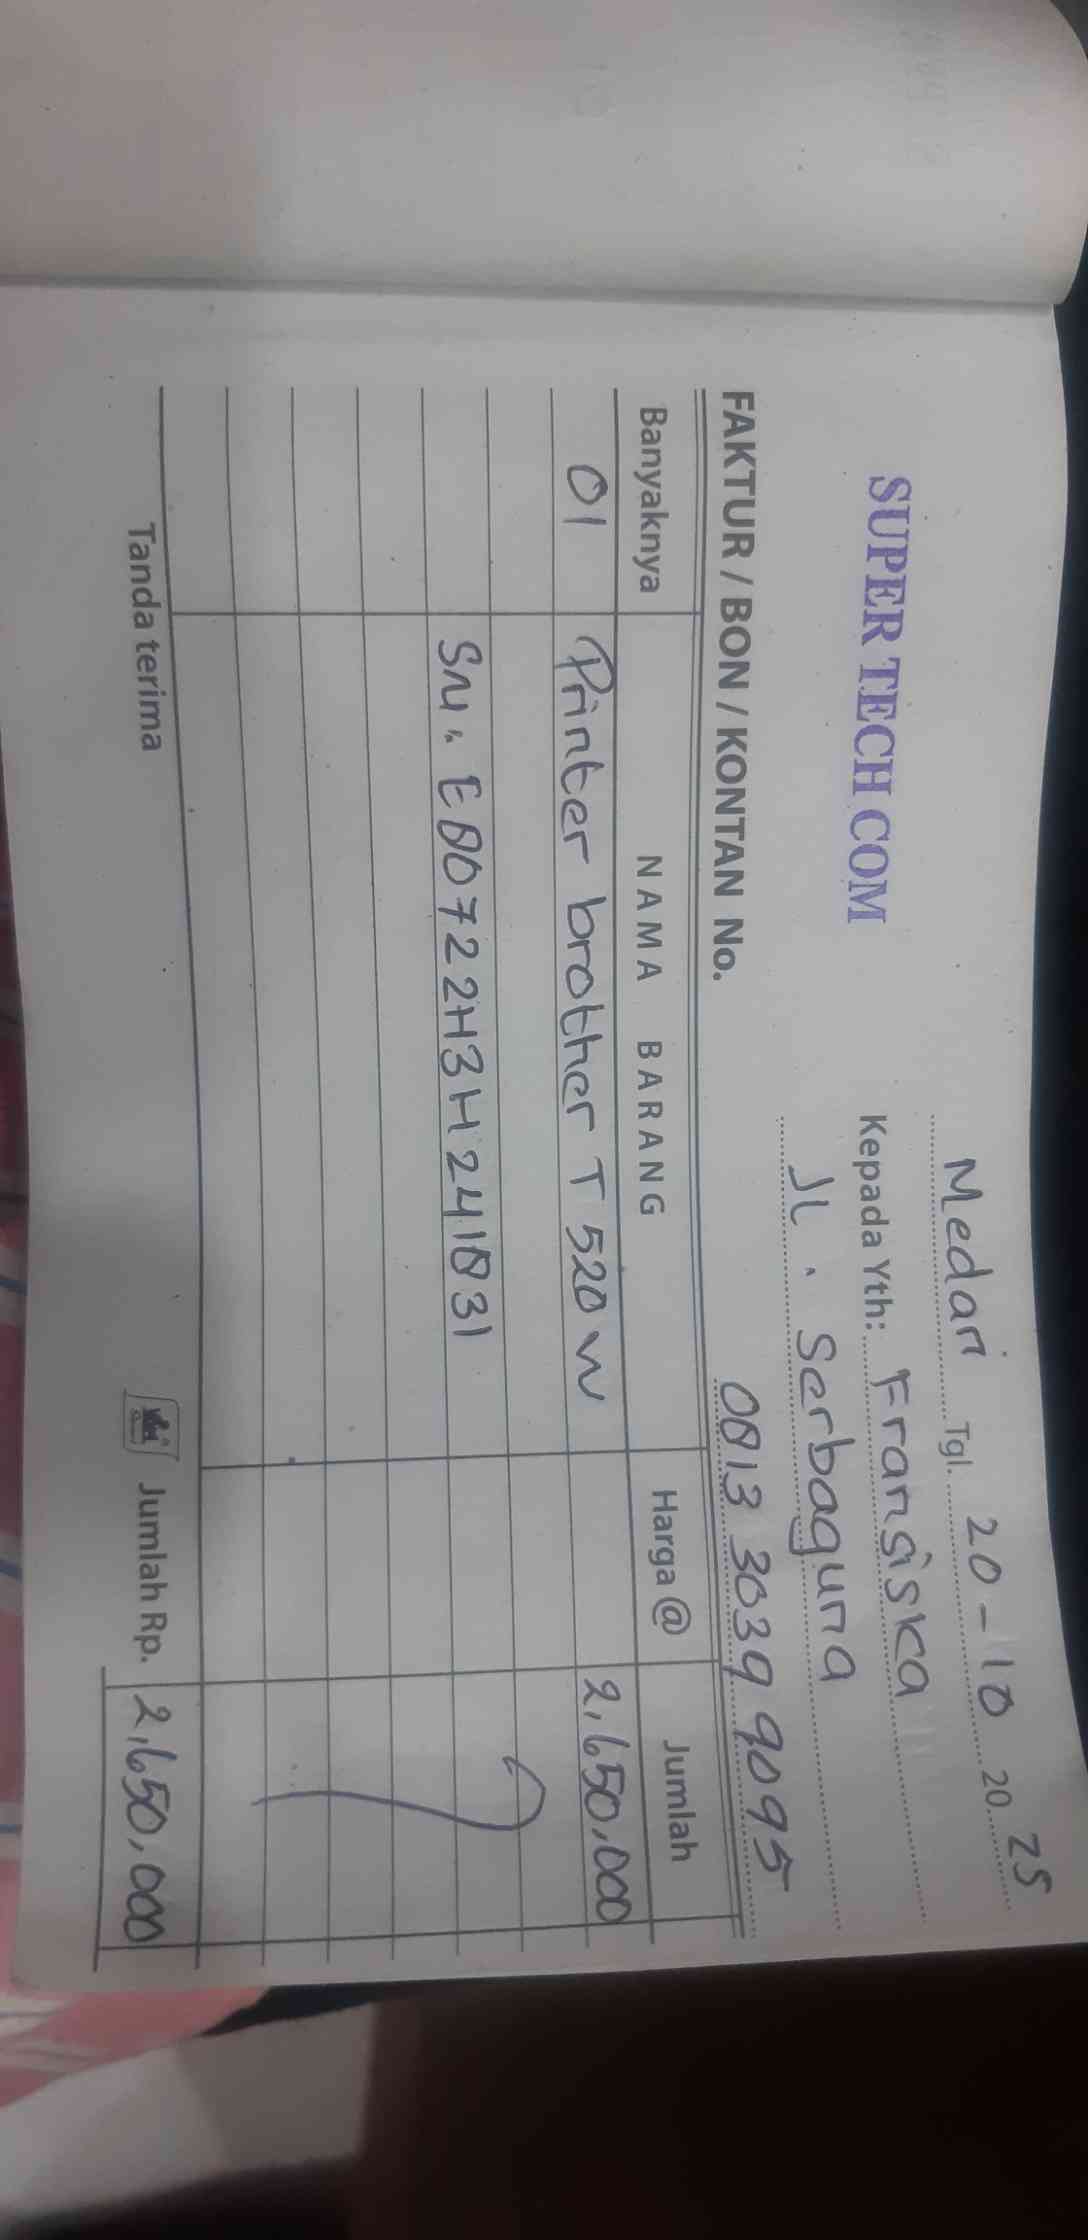 Medan Tgl. 20-10 20 25
SUPER TECH COM
Kepada Yth: Fransiska
Jl. Serbaguna
FAKTUR / BON / KONTAN No.
0813 3039 9095
Banyaknya NAMA BARANG Harga @ Jumlah
01 Printer brother T 520 W 2,650,000
Sn: E80722H3H241831
Tanda terima
Jumlah Rp. 2,650,000